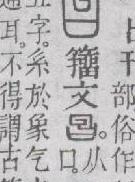 干部俗作
籀文
从
口
字。系於象气
耳。不得謂古